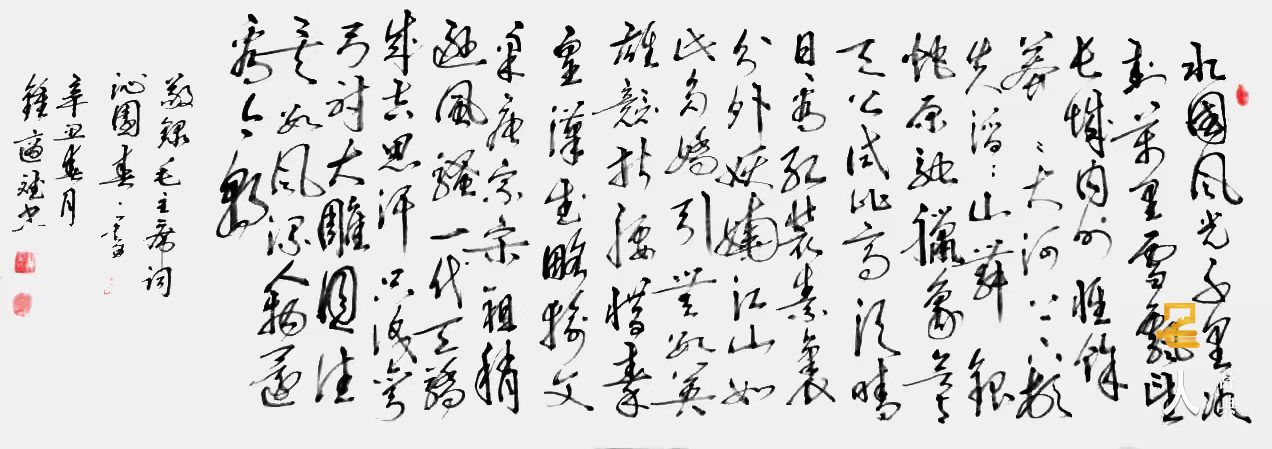 北國风光千里冰
封萬里雪飄望
长城内外惟馀
莽莽大河上下顿
失滔滔山舞银
蛇原馳臘象欲与
天公试比高须晴
日看红装素裹
分外妖娆江山如
此多嬌引無數英
雄競折腰惜秦
皇漢武略输文
采唐宗宋祖稍
逊風騷一代天骄
成吉思汗只识弯
弓射大雕俱往
矣数风流人物还
看今朝
敬録毛主席词
沁園春·雪
辛丑春月
鍾